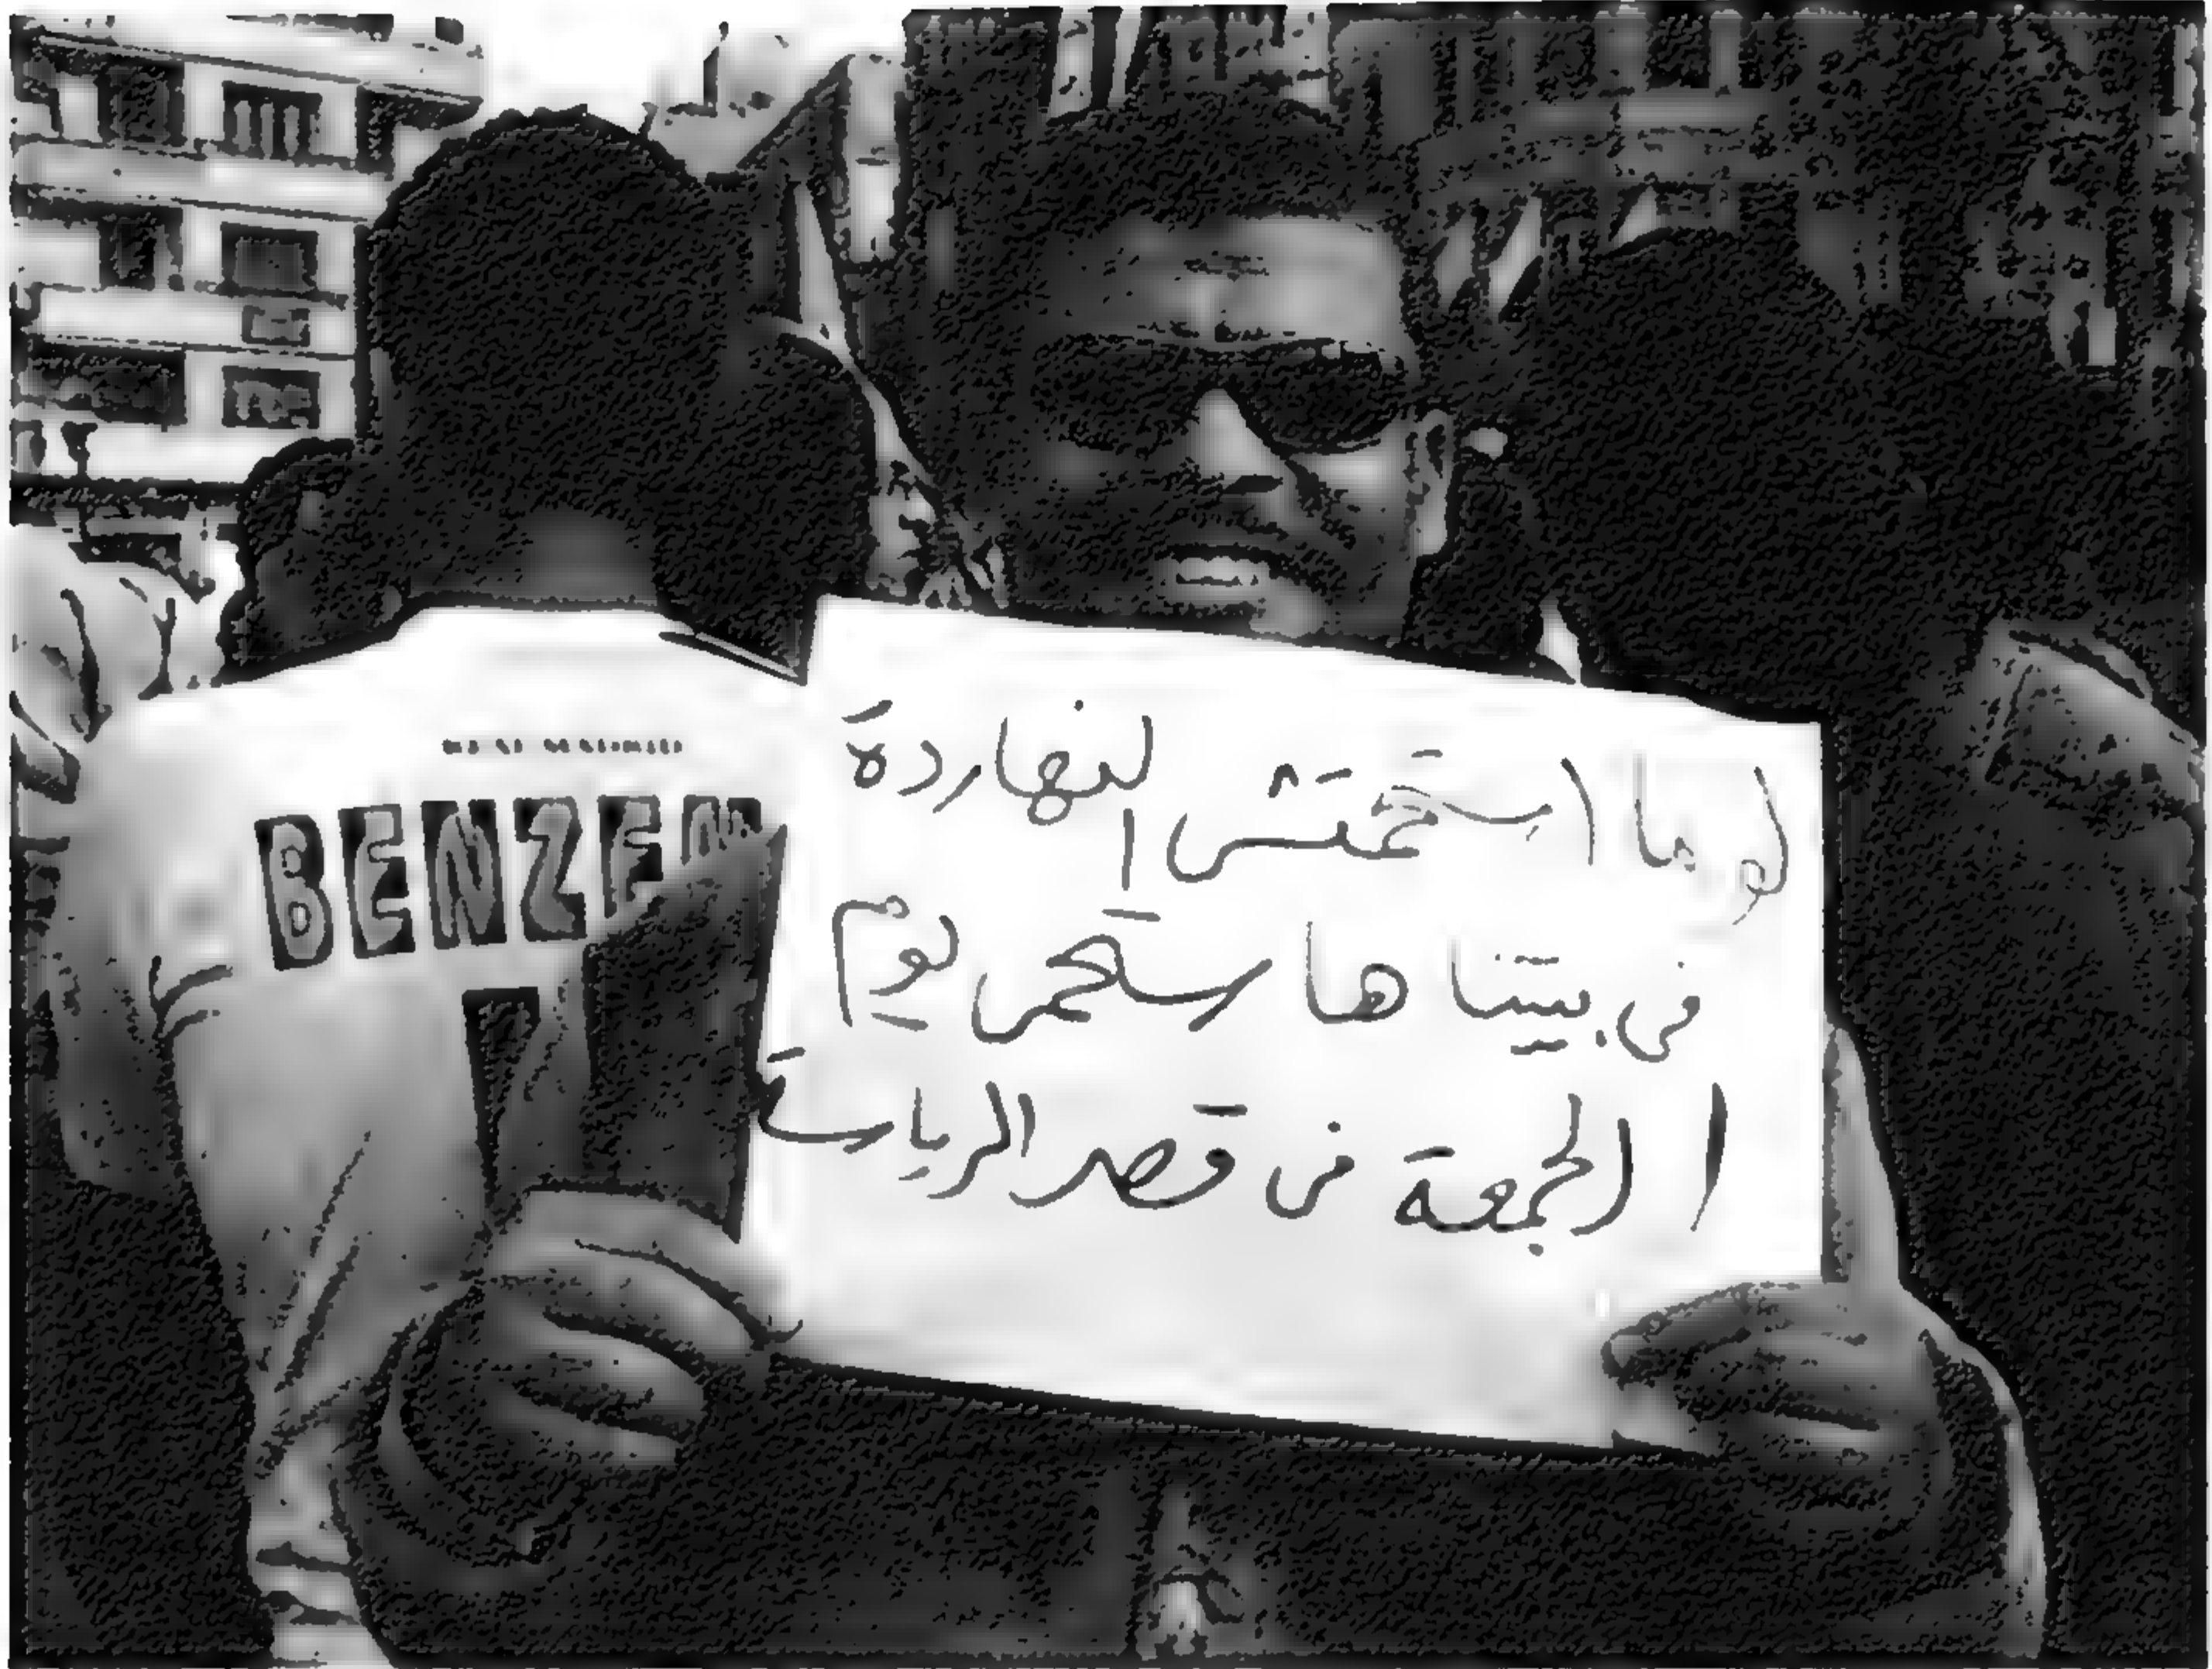 REAL MADRID
BENZEM
لو ما استحمتش النهاردة
فى بيتنا هاستحمى يوم
الجمعة فى قصر الرياسة